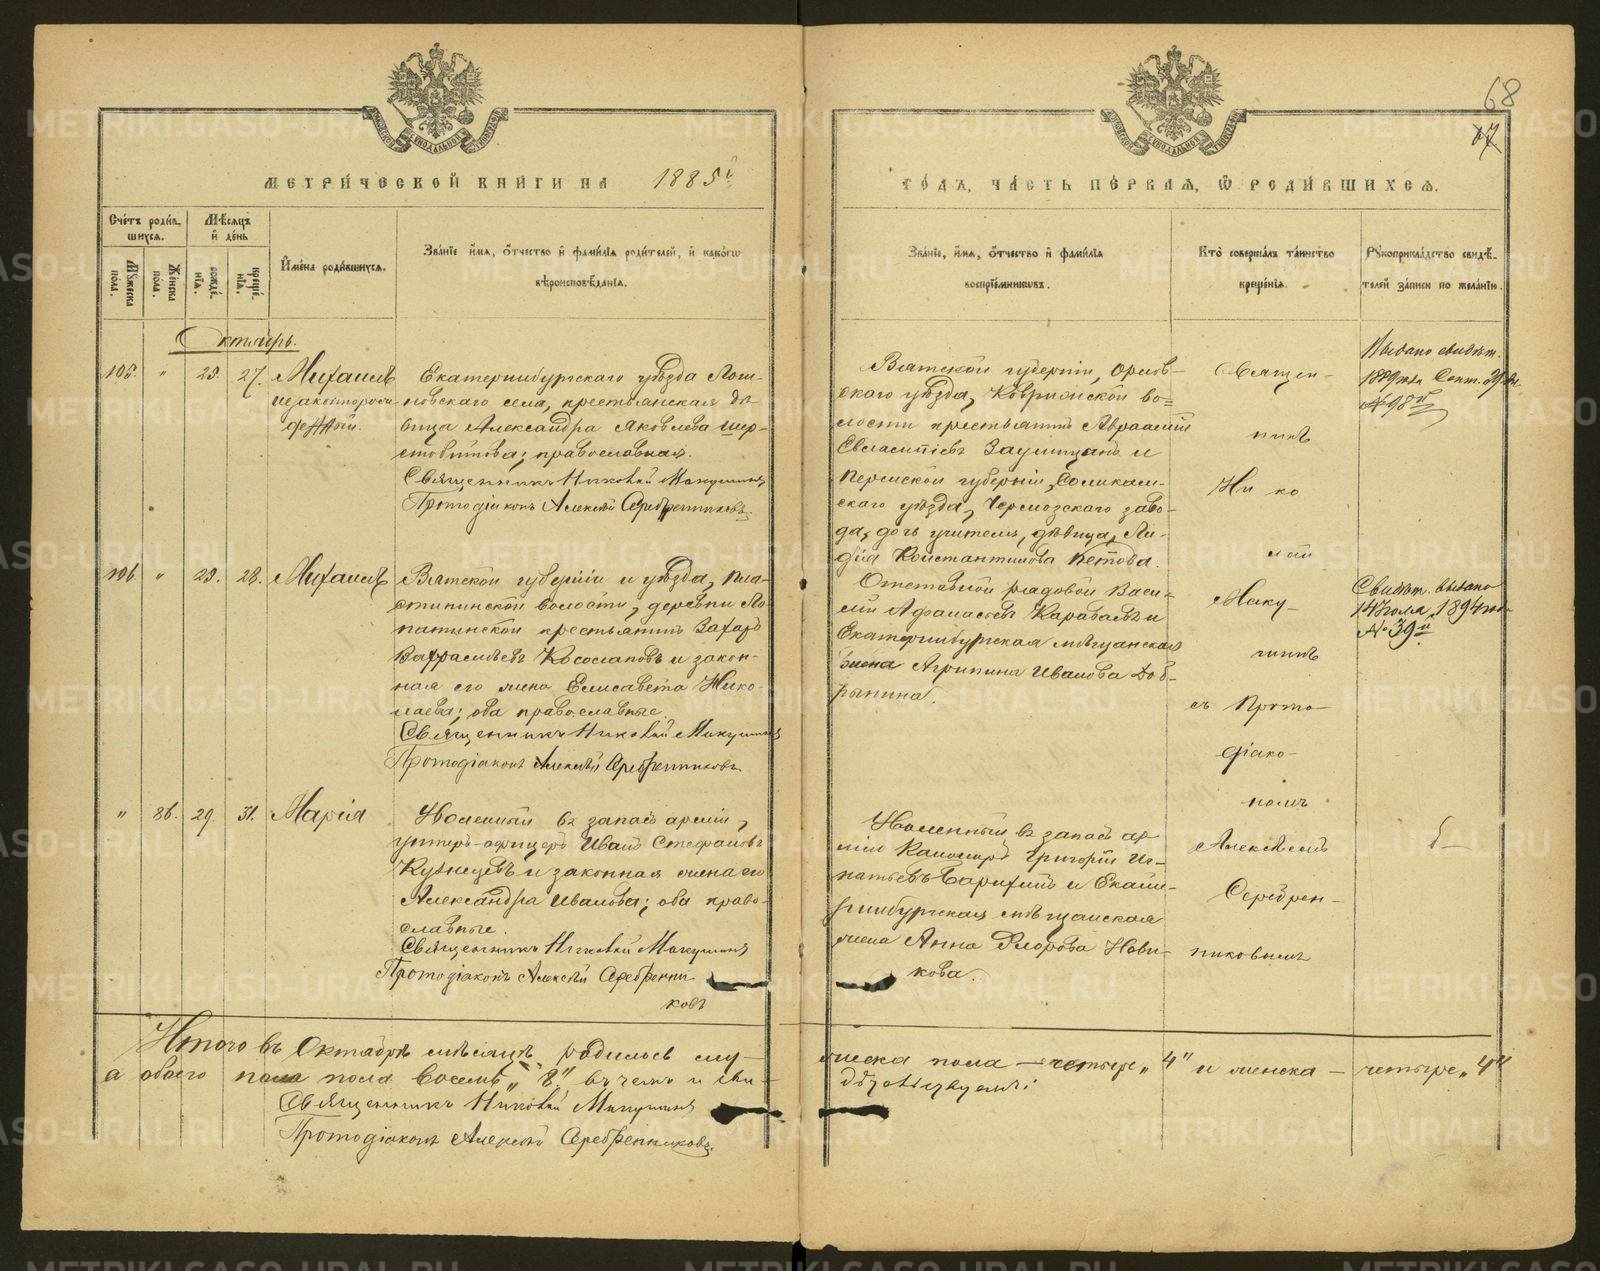 68
67
МЕТРИ́ЧЕСКОЙ КНИ́ГИ НА 1885й
ГО́ДЪ, ЧА́СТЬ ПЕ́РВАЯ, Ѡ РОДИ́ВШИХСЯ.
Сче́тъ роди́в-
шихся.
Мѣ́сяцъ
и де́нь
Мꙋ́жеска
по́ла.
Же́нска
по́ла.
рожде́-
нїя.
креще́-
нїя.
И́мена роди́вшихся.
Зва́нїе и́мя, о́тчество и фами́лїя роди́телей, и како́гѡ
вѣроисповѣ́данїя.
Зва́нїе, и́мя, о́тчество и фами́лїя
воспрїе́мниковъ.
Кто̀ соверша́лъ та́инство
креще́нїя.
Рꙋкоприкла́дство свидѣ́-
телей за́писи по жела́нїю.
Октябрь.
105. " 25. 27. Михаилъ
незаконнорож-
денный.
Екатеринбургскаго уѣзда Логи-
новскаго села, крестьянская дѣ-
вица Александра Яковлева Шер-
стобитова; православная.
Священникъ Николай Макушинъ
Протодіаконъ Алексѣй Серебренниковъ.
Вятской губерніи, Орлов-
скаго уѣзда, Коврижской во-
лости крестьянинъ Авраамій
Евсигніевъ Заушицынъ и
Пермской губерніи, Соликам-
скаго уѣзда, Чермозскаго заво-
да, дочь учителя, дѣвица, Ли-
дія Константинова Кетова.
Выдано свидѣт.
1889 года Сент. 29 дн.
№ 98й
106. " 23. 28. Михаилъ
Вятской губерніи и уѣзда,
волости, деревни Ло-
патинской крестьянинъ Захаръ
Косолаповъ и закон-
ная его жена Елисавета Нико-
лаева; оба православные.
Священникъ Николай Макушинъ
Протодіаконъ Алексѣй Серебренниковъ
Отставной рядовой Васи-
лій Афанасьевъ Караваевъ и
Екатеринбургская мѣщанская
жена Агрипина Иванова Доб-
рынина.
Свидѣт. выдано
14 1894 года
№ 39й
" 86. 29. 31. Марія
Уволенный въ запасъ арміи,
унтеръ-офицеръ Иванъ Стефановъ
Кузнецовъ и законная жена его
Александра Иванова; оба право-
славные.
Священникъ Николай Макушинъ
Протодіаконъ Алексѣй Серебренни-
ковъ
Уволенный въ запасъ ар-
міи Григорій Иг-
натьевъ и Екате-
ринбургская мѣщанская
жена Анна Флорова Нови-
кова.
Священ-
никъ
Нико
лай
Маку-
шинъ
съ Прото-
діако-
номъ
Алексѣемъ
Серебрен-
никовымъ
Итого въ Октябрѣ мѣсяцѣ родилось му-
жеска пола — четыре „4" и женска — четыре „4"
а обоего пола восемь „8", въ чемъ и сви-
дѣтельствуемъ:
Священникъ Николай Макушинъ
Протодіаконъ Алексѣй Серебренниковъ.
METRIKI.GASO-URAL.RU